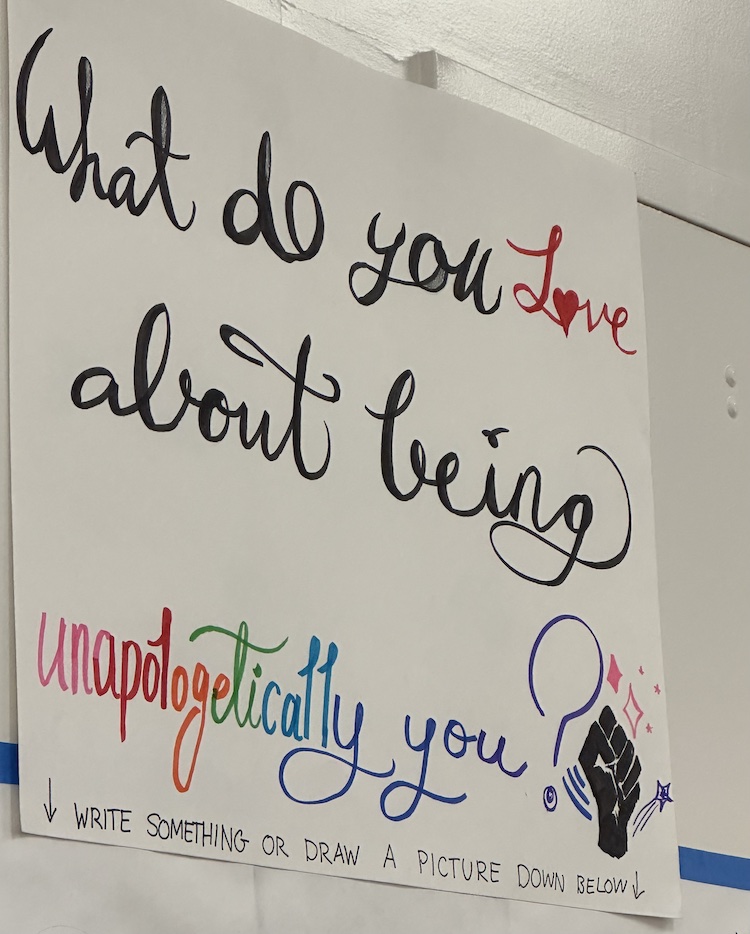 What do you Love
about being
unapologetically you?
↓ WRITE SOMETHING OR DRAW A PICTURE DOWN BELOW ↓